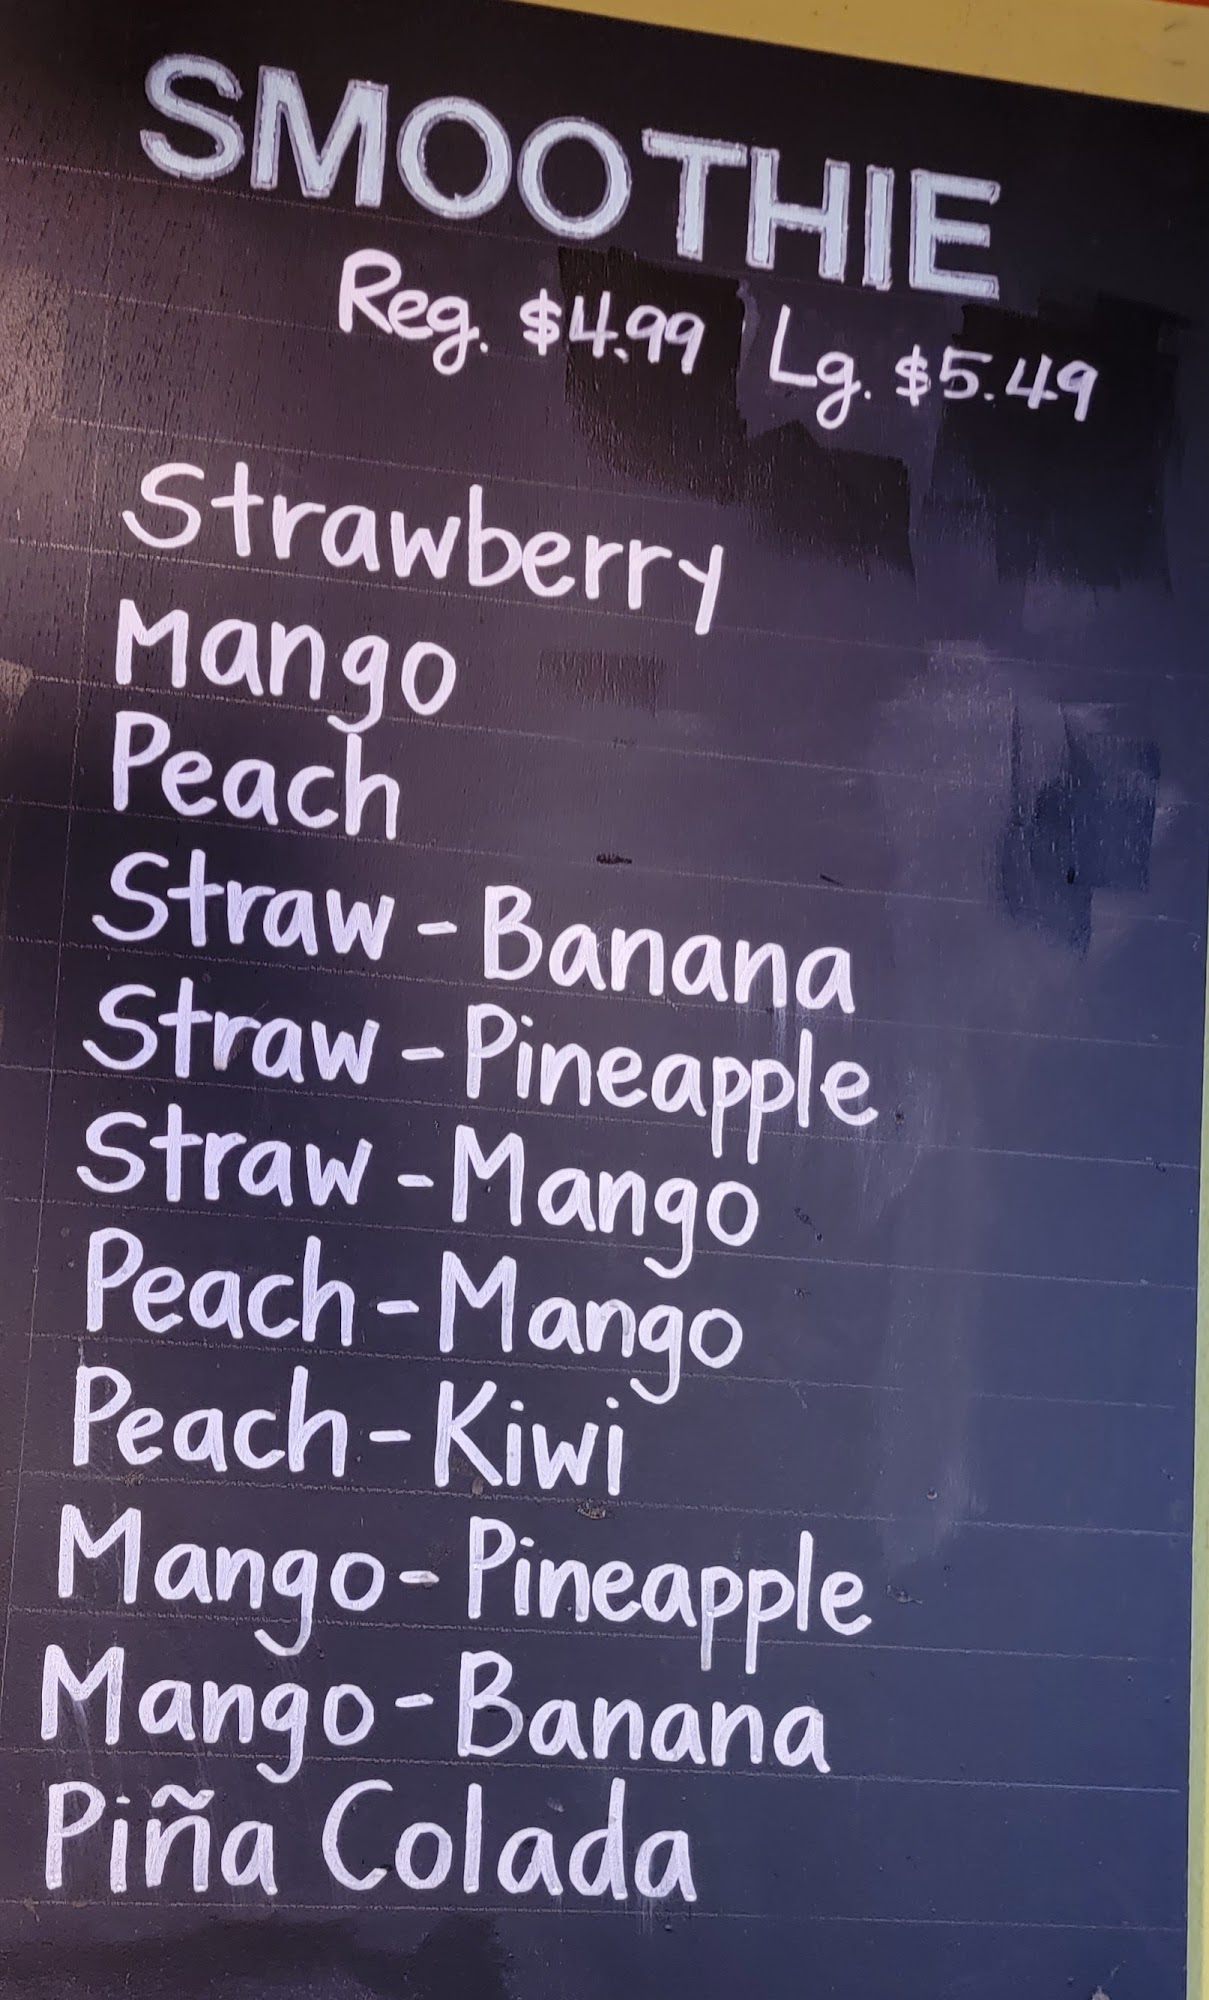 SMOOTHIE
Reg. $4.99 Lg. $5.49
Strawberry
Mango
Peach
Straw - Banana
Straw - Pineapple
Straw - Mango
Peach - Mango
Peach - Kiwi
Mango - Pineapple
Mango - Banana
Piña Colada